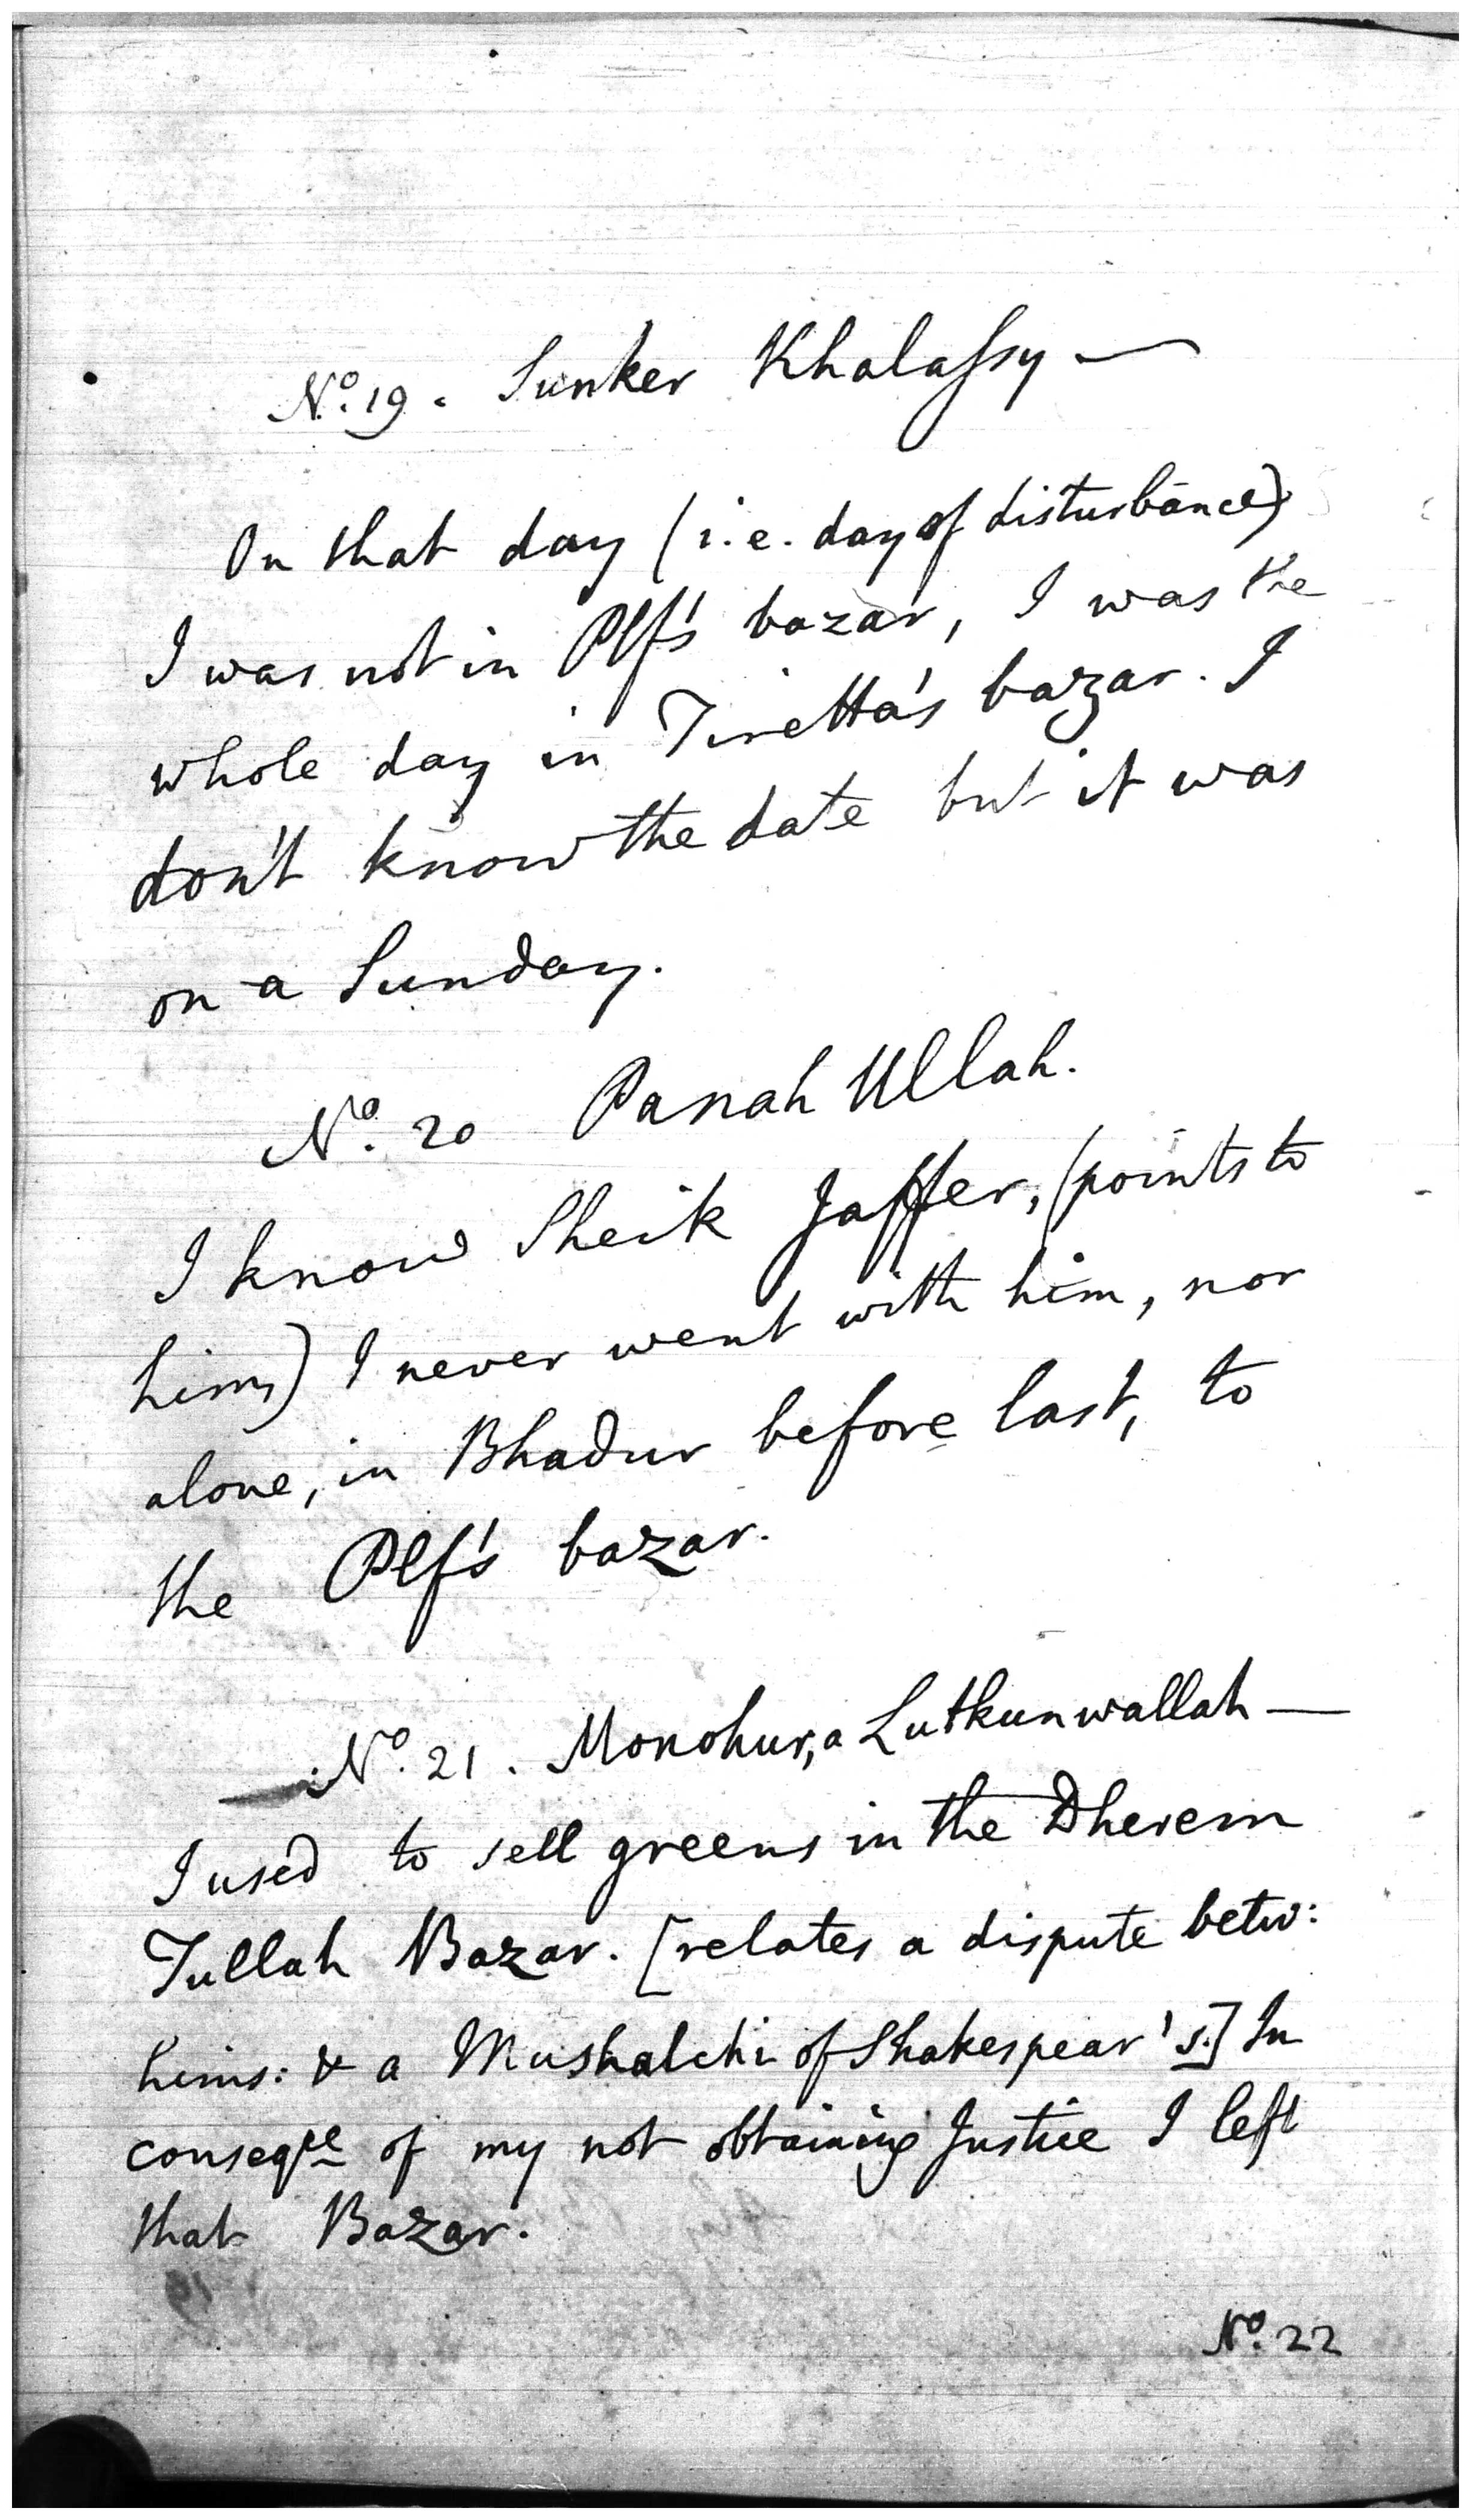 No. 19. Sunker Khalassy —
On that day (i.e. day of disturbance)
I was not in Plf's bazar, I was the
whole day in Tiretta's bazar. I
don't know the date but it was
on a Sunday.
No. 20 Panah Ullah.
I know Sheik Jaffer, (points to
him) I never went with him, nor
alone, in Bhadur before last, to
the Plf's bazar.
No. 21. Monohur, a Lutkunwallah —
I used to sell greens in the Dherem
Tullah Bazar. [relates a dispute betw:
hims: & a Mushalchi of Shakespear's.] In
conseqce of my not obtaining Justice I left
that Bazar.
No. 22